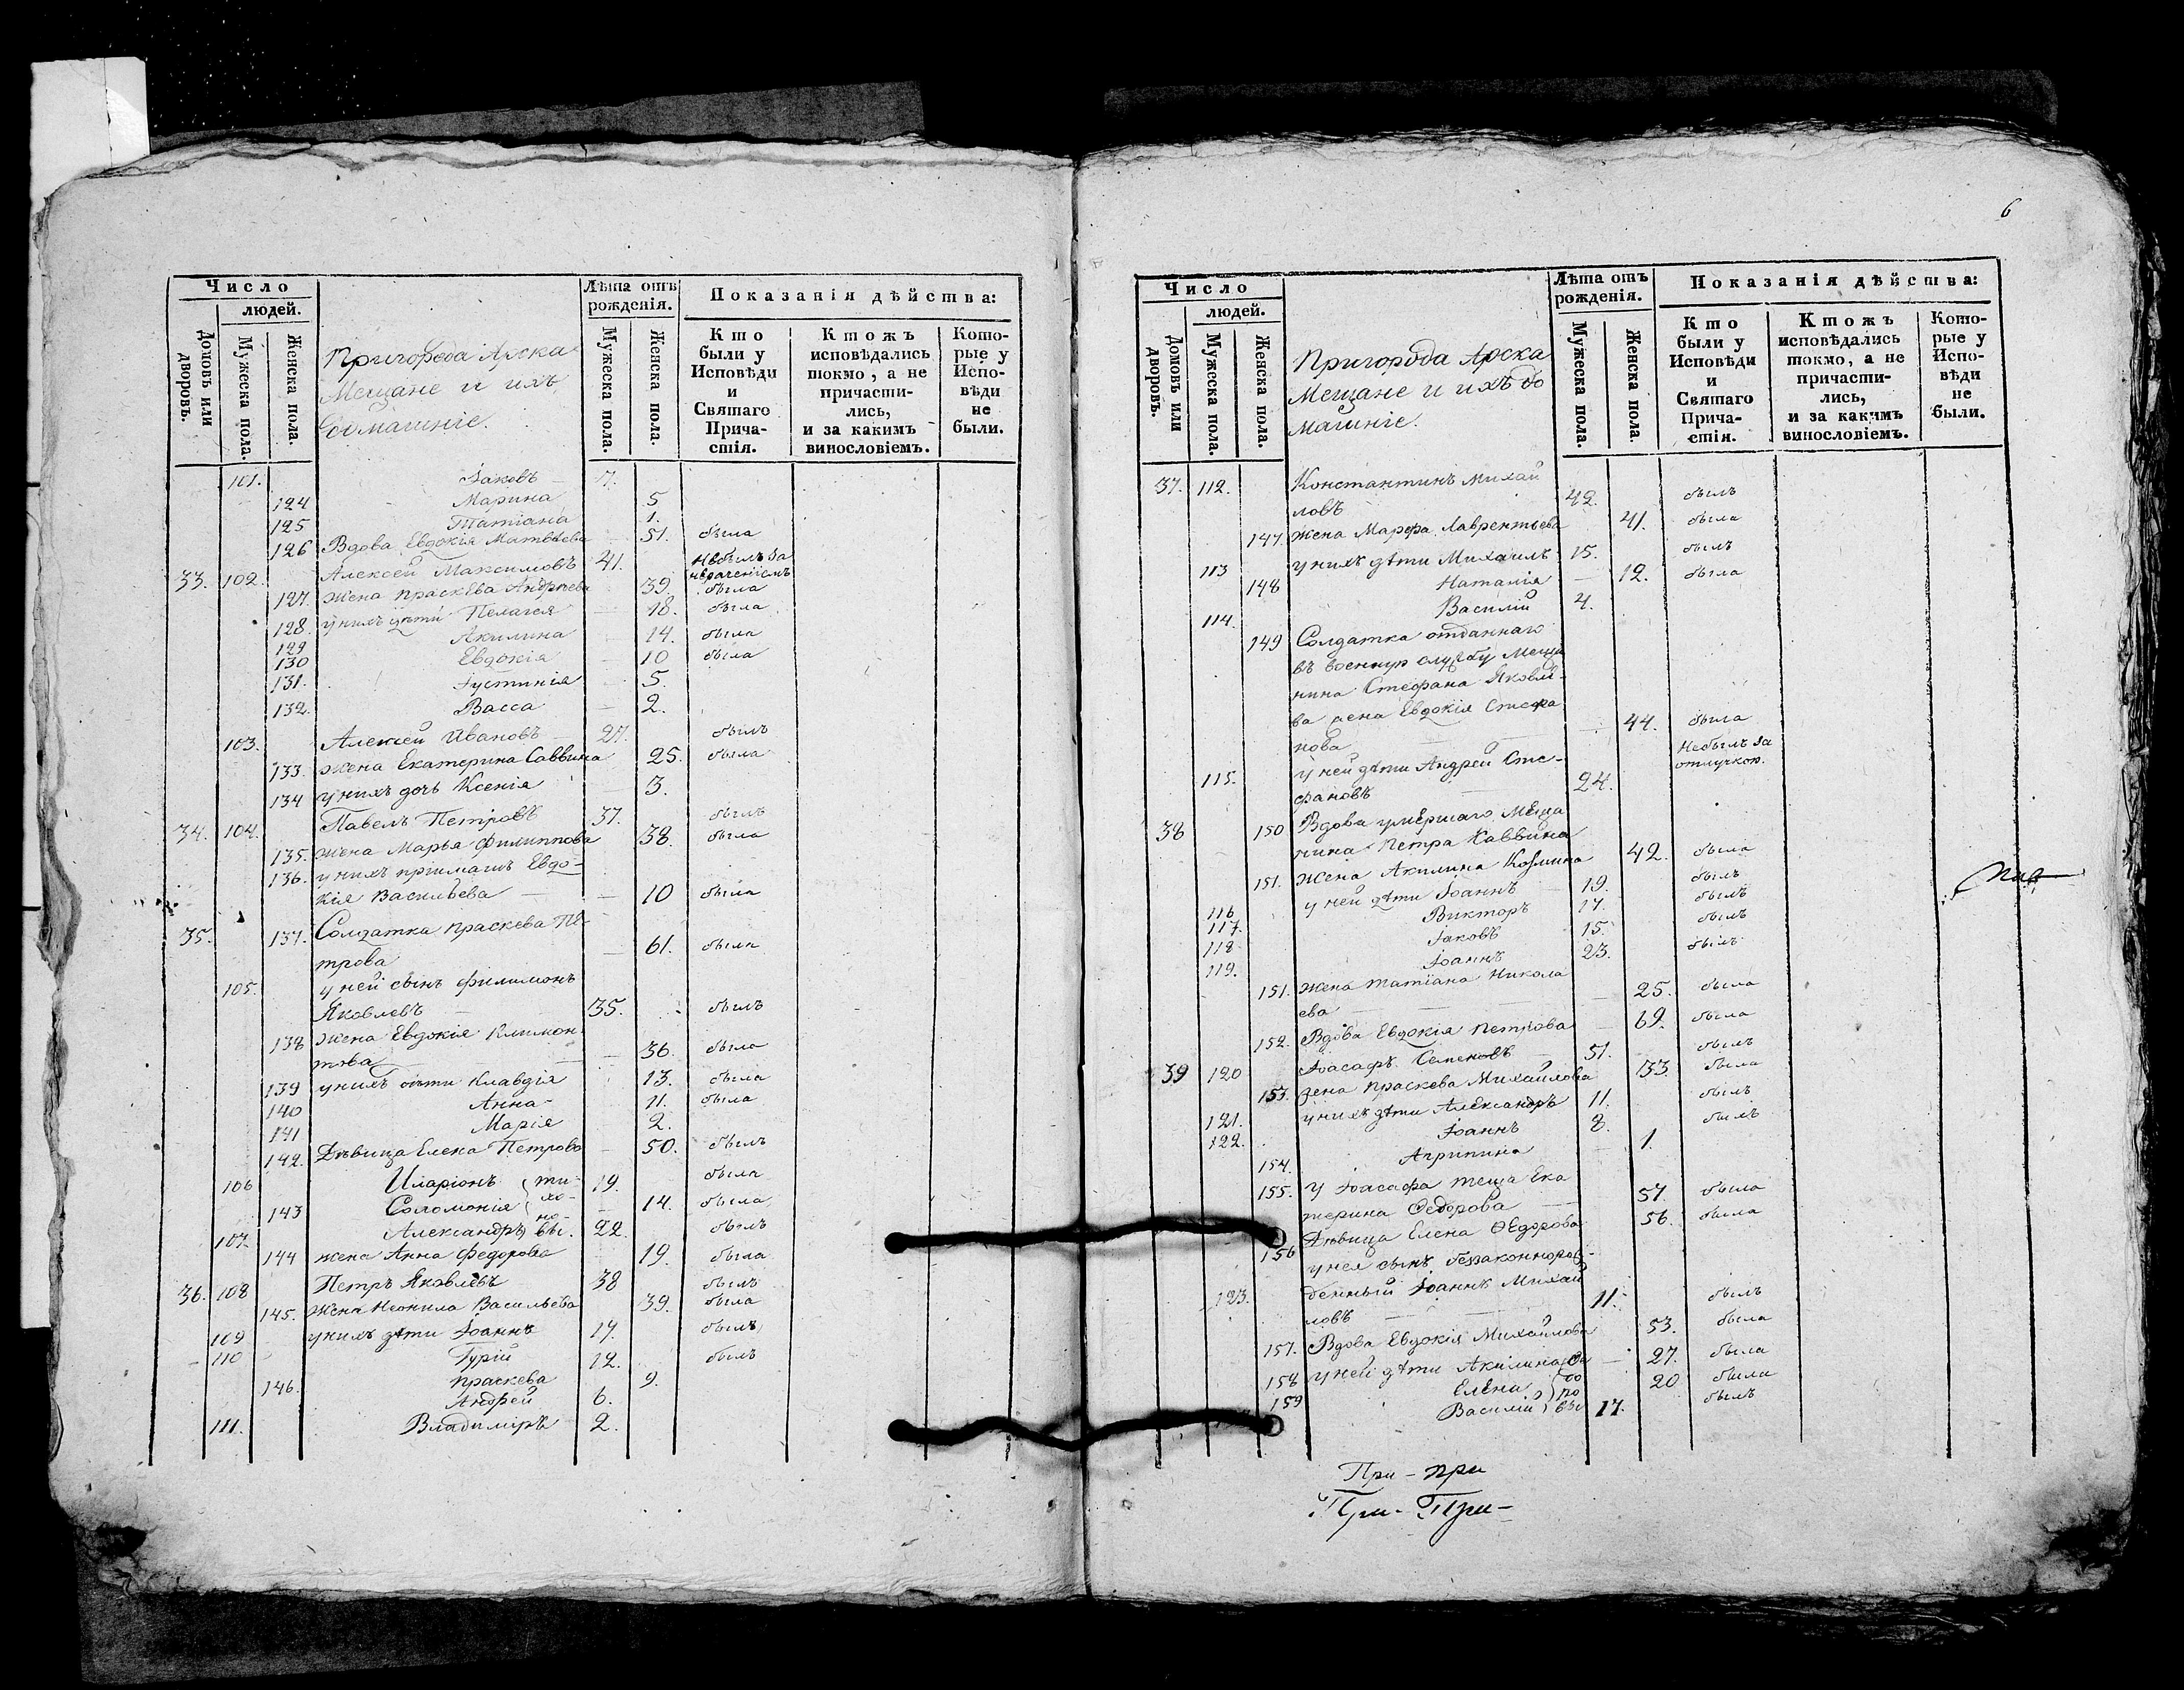 Число
людей.
Домовъ или дворовъ.
Мужеска пола.
Женска пола.
Пригорода Арска
Мещане и ихъ
домашніе.
Лѣта отъ
рожденія.
Мужеска пола.
Женска пола.
Показанія дѣйства:
Кто
были у
Исповѣди
и
Святаго
Прича-
стія.
Ктожъ
исповѣдались
токмо, а не
причасти-
лись,
и за какимъ
винословіемъ.
Кото-
рые у
Испо-
вѣди
не
были.
101. Іаковъ 7.
124 Марина 5
125 Татіана 1.
126 Вдова Евдокія Матвѣева 51. была
33. 102. Алексей Максимовъ 41. Небылъ за
нераченіемъ
127. Жена Праскева Андреева 39. была
128. у нихъ дѣти Пелагея 18. была
129 Акилина 14. была
130 Евдокія 10 была
131. Іустинія 5.
132. Васса 2.
103. Алексей Ивановъ 27. былъ
133. Жена Екатерина Саввина 25. была
134 у нихъ дочь Ксенія 3.
34. 104. Павелъ Петровъ 37. былъ
135. Жена Марья Филиппова 38. была
136. у нихъ Евдо-
кія Васильева 10 была
35. 137. Солдатка Праскева Пе-
трова 61. была
105. у ней сынъ Филимонъ
Яковлевъ 35. былъ
138 Жена Евдокія Климон
това 36. была
139 у нихъ дѣти Клавдія 13. была
140 Анна 11. была
141 Марія 2.
142. Дѣвица Елена Петрова 50. былъ
106 Иларіонъ ти- 19. была
143 Соломонія хо- 14. была
но-
107. Александръ вы. 22. былъ
144 жена Анна Федорова 19. была
36. 108 Петръ Яковлевъ 38 былъ
145. Жена Неонила Васильева 39. была
109 у нихъ дѣти Іоаннъ 17. былъ
110 Гурій 12. былъ
146. Праскева 9.
Андрей 6.
111. Владиміръ 2.
6
Число
людей.
Домовъ или дворовъ.
Мужеска пола.
Женска пола.
Пригорода Арска
Мещане и ихъ до
машніе.
Лѣта отъ
рожденія.
Мужеска пола.
Женска пола.
Показанія дѣйства:
Кто
были у
Исповѣди
и
Святаго
Прича-
стія.
Ктожъ
исповѣдались
токмо, а не
причасти-
лись,
и за какимъ
винословіемъ.
Кото-
рые у
Испо-
вѣди
не
были.
37. 112. Константинъ Михай
ловъ 42. былъ
147. Жена Марфа Лаврентьева 41. была
113 у нихъ дѣти Михаилъ 15. былъ
148 Наталія 12. была
114. Василій 4.
149 Солдатка отданнаго
въ военную службу Меща
нина Стефана Яковле-
ва жена Евдокія Стефа
нова 44. была
115. у ней дѣти Андрей Сте-
фановъ 24. Небылъ за
отлучкою.
38 150 Вдова умершаго Меща
нина Петра Саввина
151. жена Акилина Козмина 42. была
116 у ней дѣти Іоаннъ 19. былъ
117. Викторъ 17. былъ
118 Іаковъ 15. былъ
119. Іоаннъ 23. былъ
151. жена Татіана Никола
ева 25. была
152. Вдова Евдокія Петрова 69. была
39 120 Іоасафъ Семеновъ 51. былъ
153. жена Праскева Михайлова 53. была
121. у нихъ дѣти Александръ 11. былъ
122. Іоаннъ 8. былъ
154. Агрипина 1.
155. У Іоасафа теща Ека
терина Федорова 57. была
156 Дѣвица Елена Ѳедорова 56. была
у нея сынъ беззаконнорож-
123. денный Іоаннъ Михай
ловъ 11. былъ
157. Вдова Евдокія Михайлова 53. была
158 у ней дѣти Акилина 27. была
159 Елена 20 была
Василій 17. былъ
При- при
При- При-